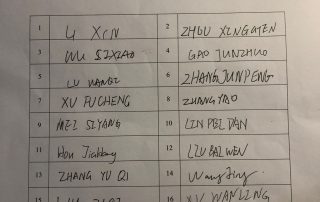 1 LI XIN 2 ZHOU XINGCHEN
3 WU SIXIAO 4 GAO JUNZHUO
5 LU 6 ZHANG JUNPENG
7 XU FUCHENG 8 ZHANG YAO
9 MEI SIYANG 10 LIN PEI DAN
11 Hou 12 LIU BAI WEN
13 ZHANG YU QI 14
15 16 XU WAN LING